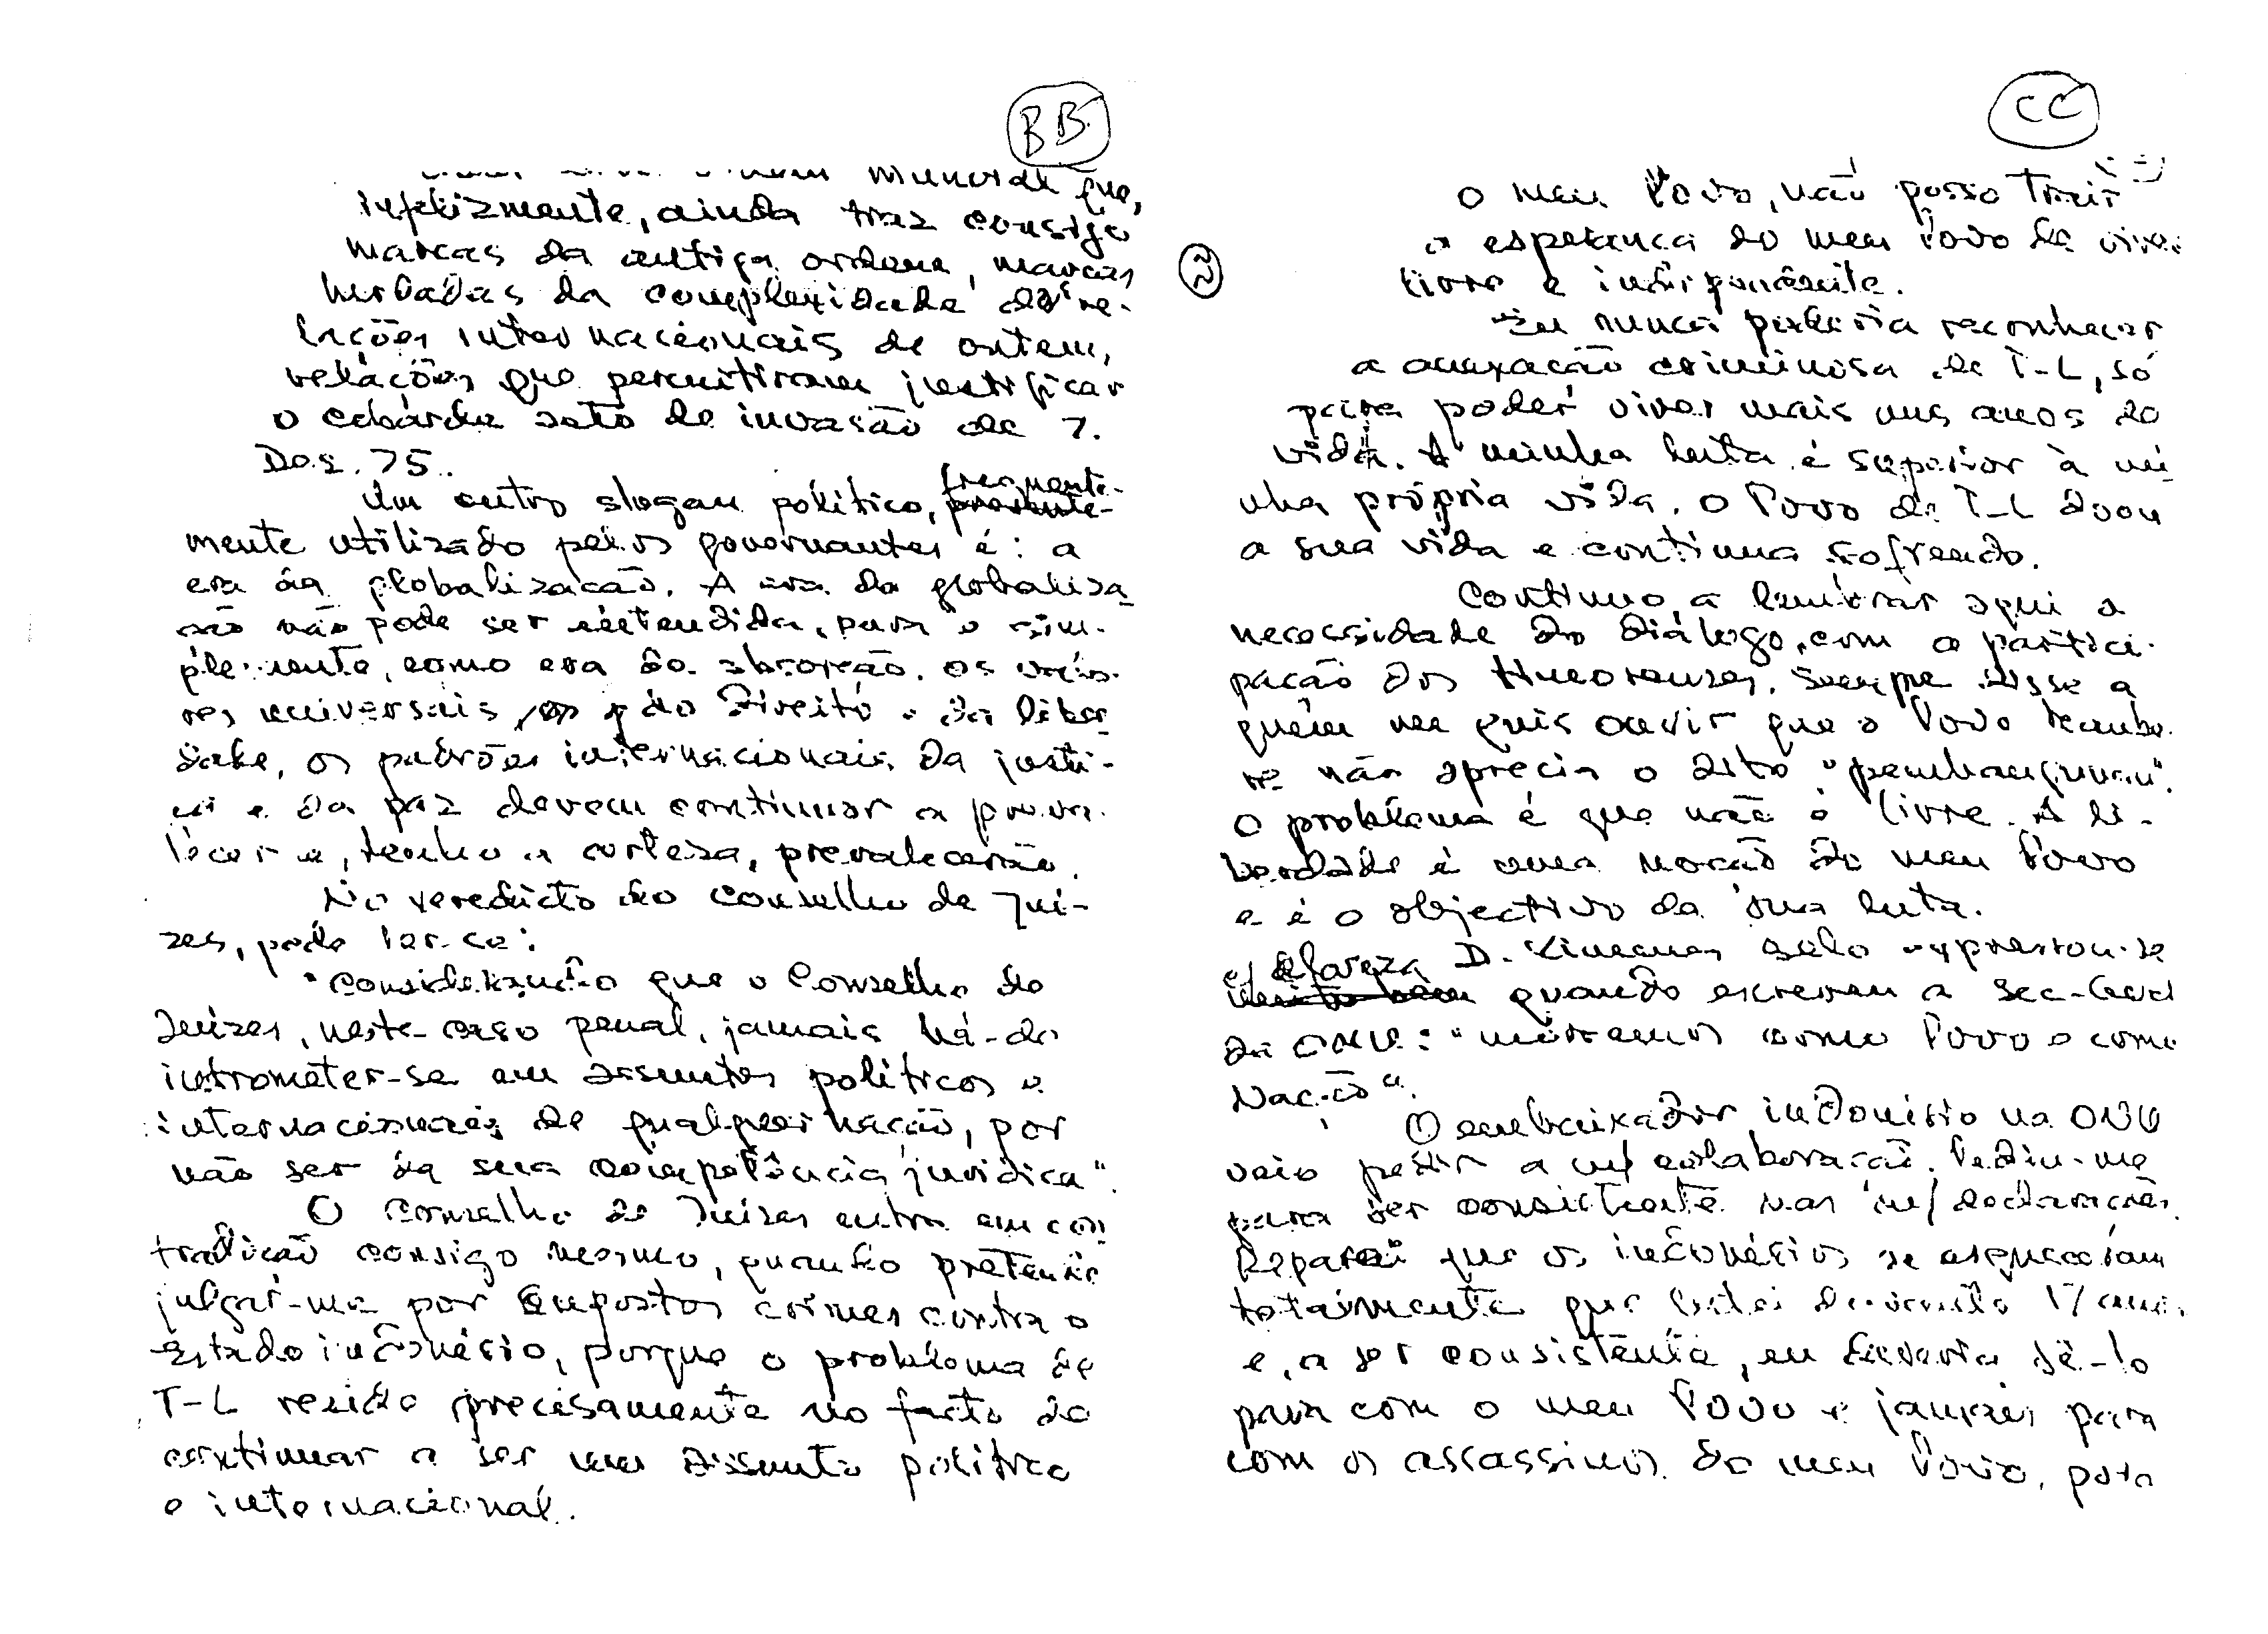 BB
mundial que,
infelizmente, ainda traz consigo
marcas da antiga ordem, marcas
herdadas da complexidade de re-
lações internacionais de ontem,
relações que permitiram justificar
o cobarde acto de invasão de 7.
Dez. 75.
Um outro slogan político, frequente-
mente utilizado pelos governantes é: a
era da globalização. A era da globaliza
ção não pode ser entendida, pura e sim-
plesmente, como era da absorção. Os valo-
res universais do Direito e da liber
dade, os padrões internacionais da justi-
ça e da paz devem continuar a preva-
lecer e, tenho a certeza, prevalecerão.
No veredicto do Conselho de Juí-
zes, pode ler-se:
"Considerando que o Conselho de
Juízes, neste caso penal, jamais há-de
intrometer-se em assuntos políticos e
internacionais de qualquer nação, por
não ser da sua competência jurídica".
O Conselho de Juízes entra em con
tradição consigo mesmo, quando pretende
julgar-me por supostos crimes contra o
Estado indonésio, porque o problema de
T-L reside precisamente no facto de
continuar a ser um assunto político
e internacional.
CC
o meu Povo, não posso trair
a esperança do meu Povo de viver
livre e independente.
Eu nunca poderia reconhecer
a anexação criminosa de T-L, só
para poder viver mais uns anos de
vida. A minha luta é superior à mi
nha própria vida. O Povo de T-L doou
a sua vida e continua sofrendo.
Continuo a lembrar aqui a
necessidade do diálogo, com a partici-
pação dos timorenses. Sempre disse a
quem me quis ouvir que o Povo Maube-
re não aprecia o dito "pembangunan".
O problema é que não é livre. A li-
berdade é uma noção do meu Povo
e é o objectivo da sua luta.
c/ clareza D. Ximenes Belo expressou-se
quando escreveu a Sec-Geral
da ONU: "morremos como Povo e como
Nação".
O embaixador indonésio na ONU
veio pedir a m/ colaboração. Pediu-me
para ser consistente nas m/ declarações.
Reparei que os indonésios se esqueceram
totalmente que lutei durante 17 anos
e, a ser consistente, eu deveria sê-lo
para com o meu Povo e jamais para
com os assassinos do meu Povo, para